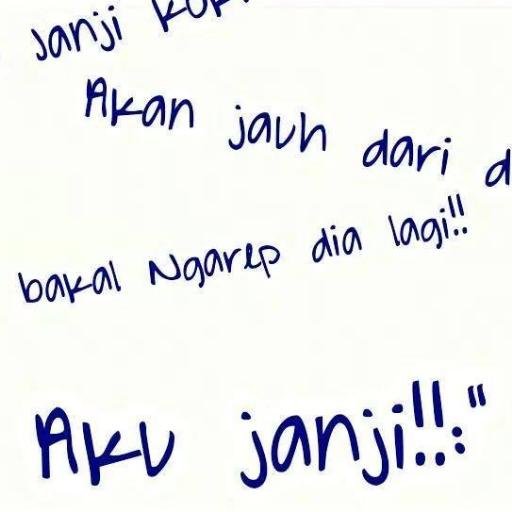 Janji
Akan jauh dari
bakal Ngarep dia lagi!!
Aku janji!!:"